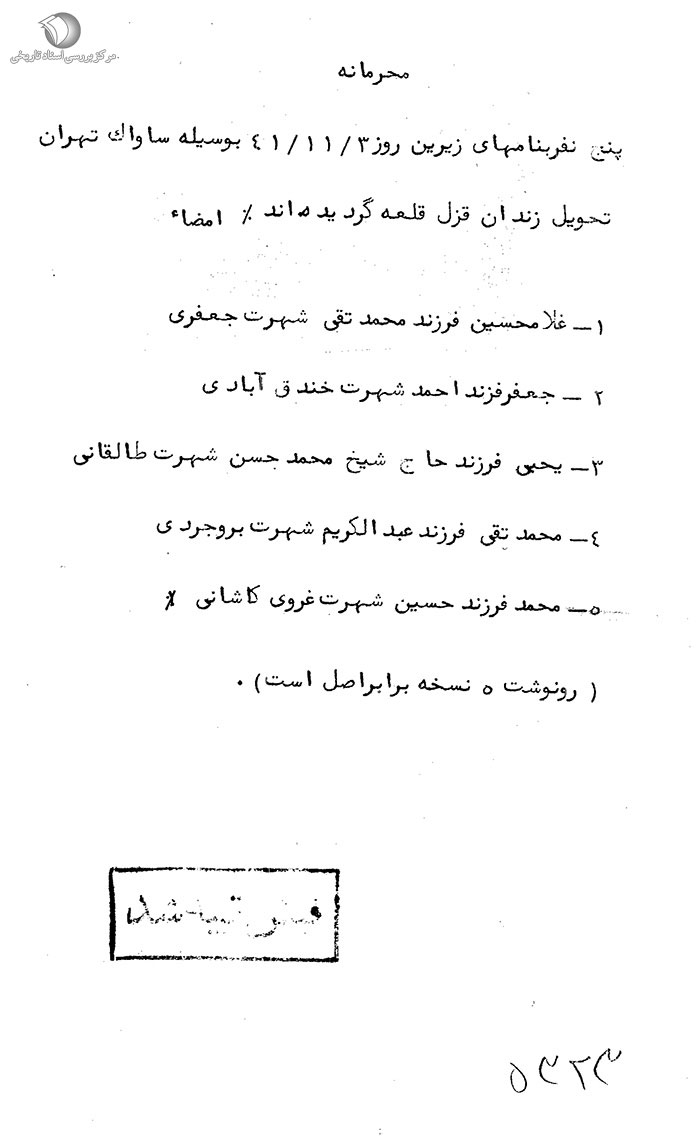 مرکز بررسی اسناد تاریخی
محرمانه
پنج نفربنامهای زیرین روز ۳/۱۱/٤۱ بوسیله ساواک تهران
تحویل زندان قزل قلعه گردیده اند ٪ امضاء
۱ـ غلامحسین فرزند محمد تقی شهرت جعفری
۲ ـ جعفرفزند احمد شهرت خندق آبادی
۳ـ یحیی فرزند حاج شیخ محمد حسن شهرت طالقانی
٤ـ محمد تقی فرزند عبدالکریم شهرت بروجردی
۵ـ محمد فرزند حسین شهرت غروی کاشانی ٪
( رونوشت ۵ نسخه برابراصل است) .
فیش تهیه شد
۵۳۲۳